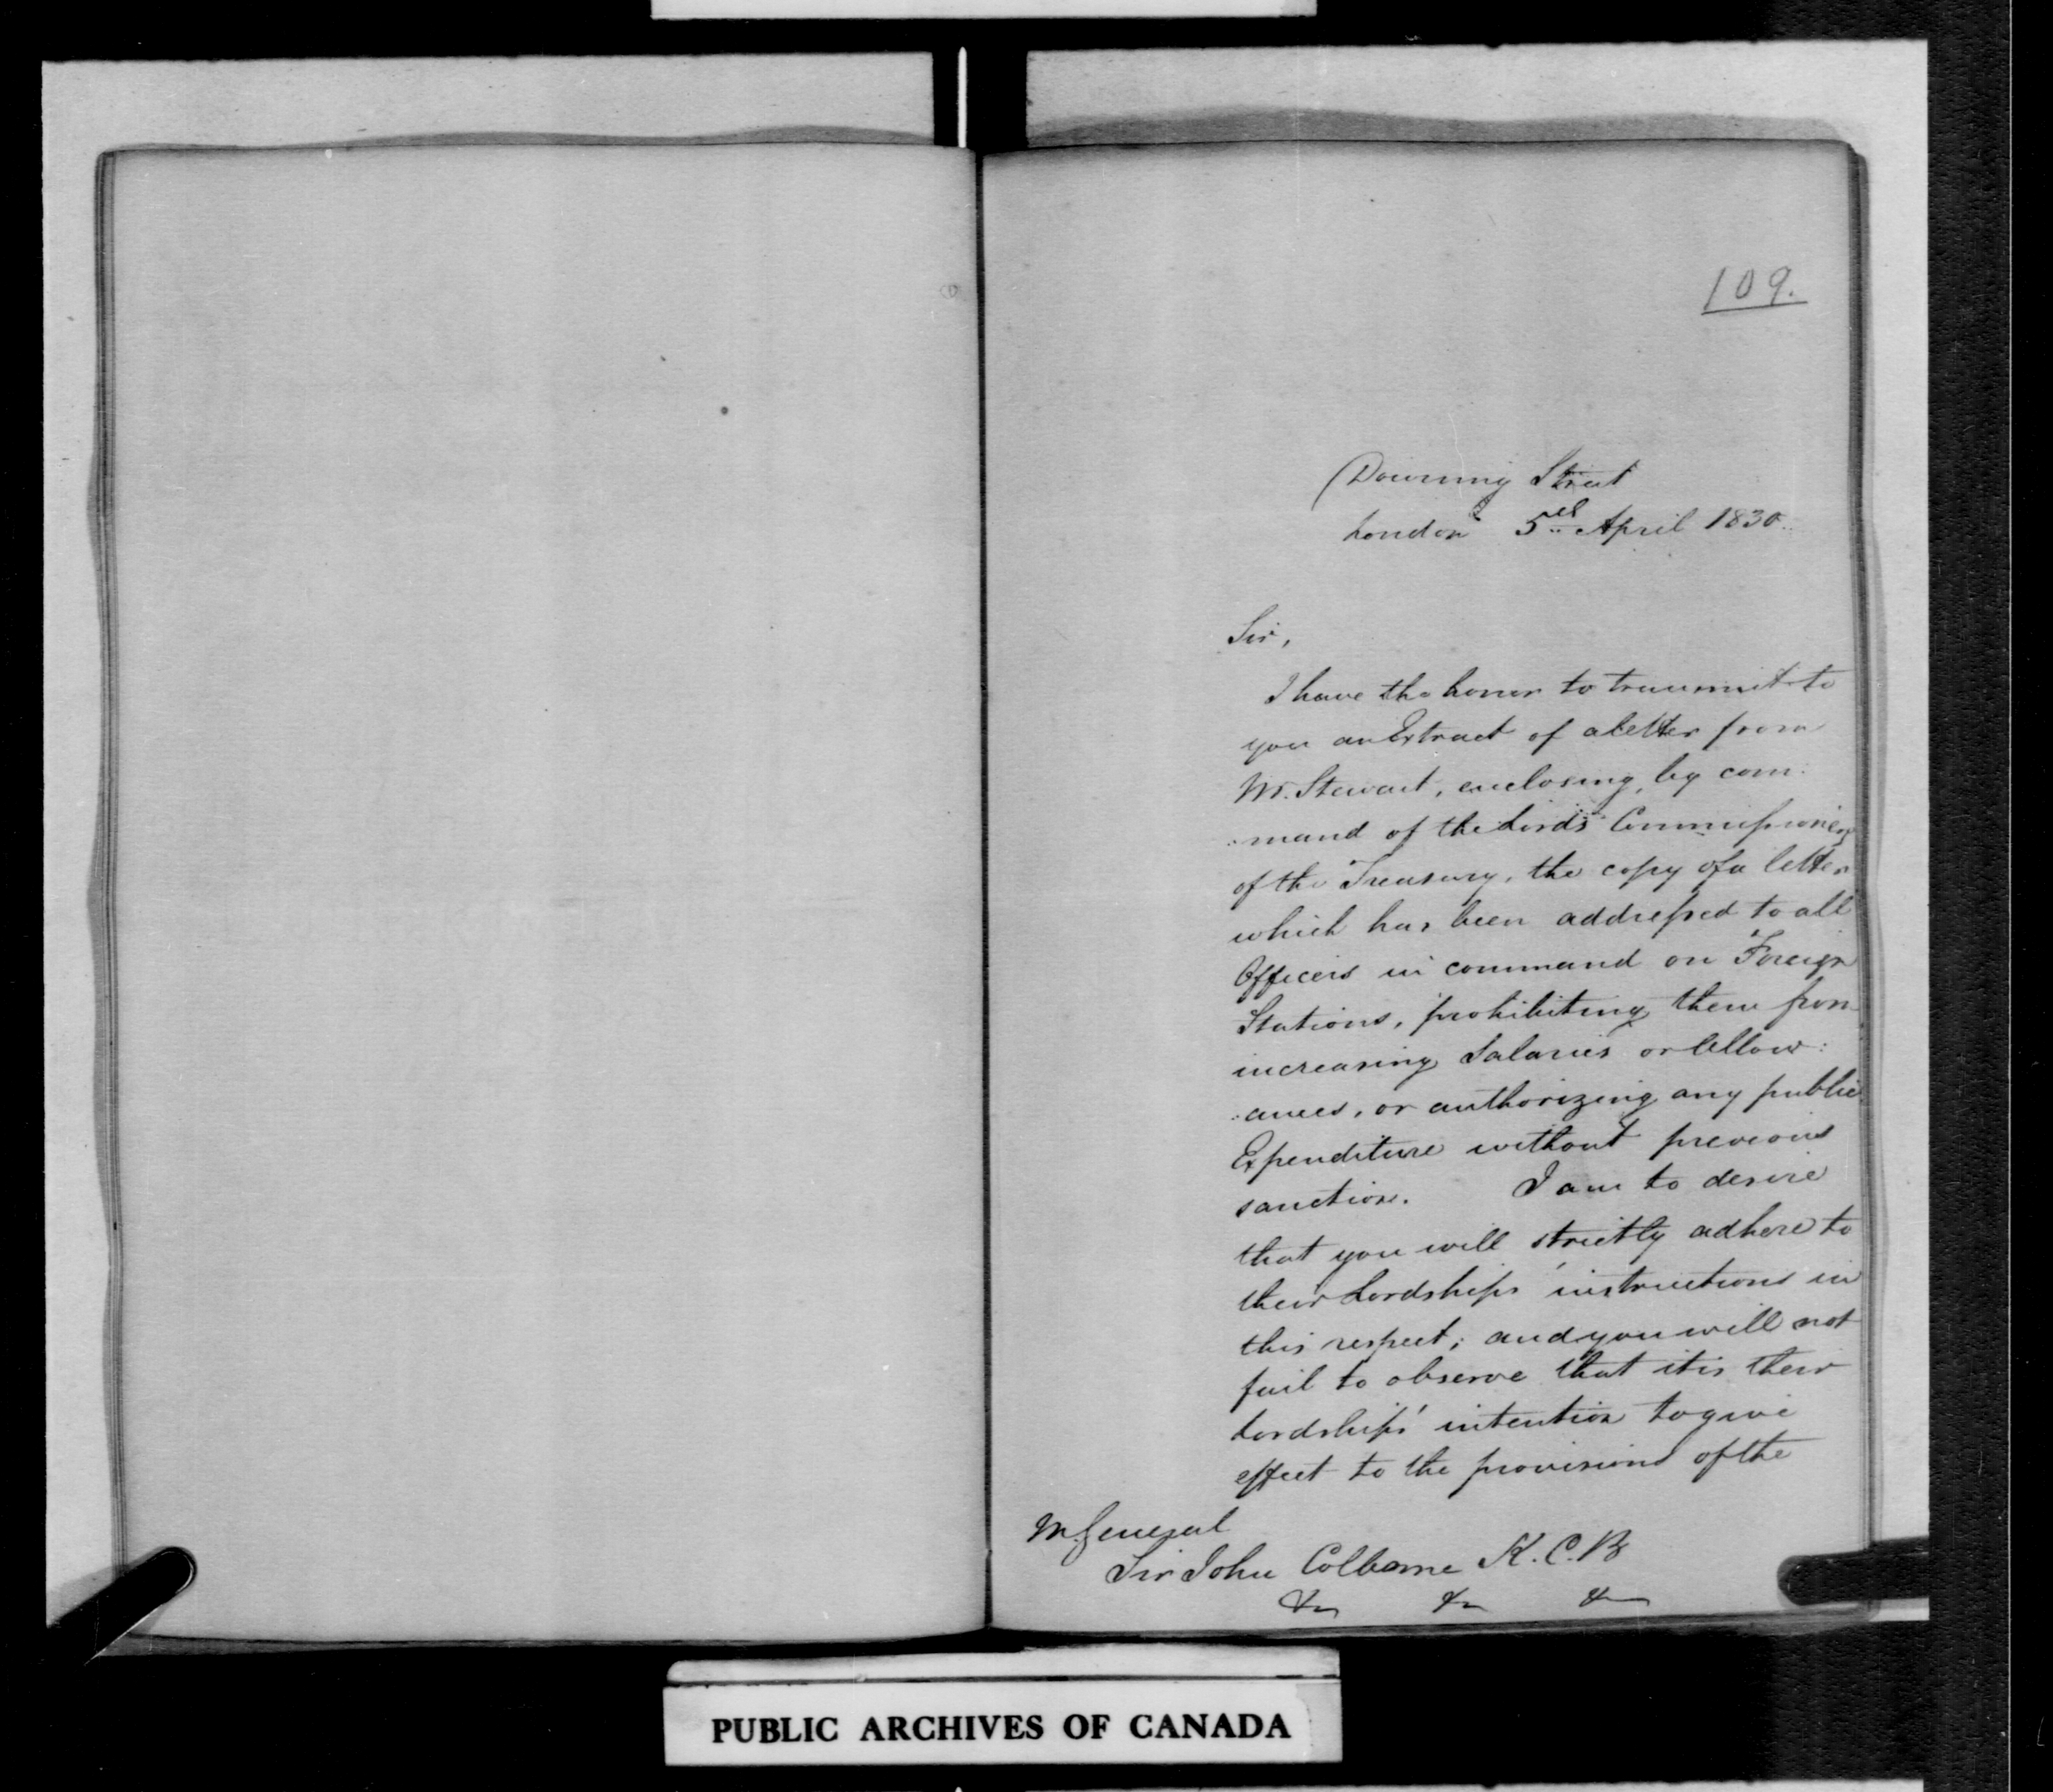 109.
Downing Street
London 5th April 1830.
Sir,
I have the honor to transmit to
you an Extract of a letter from
Mr. Stewart, enclosing, by com:
:mand of the Lords Commissioners
of the Treasury, the copy of a letter
which has been addressed to all
Officers in command on Foreign
Stations, prohibiting them from
increasing Salaries or Allow:
:ances, or authorizing any public
Expenditure without previous
sanction. I am to desire
that you will strictly adhere to
their Lordships' instructions in
this respect; and you will not
fail to observe that it is their
Lordships' intention to give
effect to the provisions of the
M. General
Sir John Colborne K.C.B
&c &c &c
PUBLIC ARCHIVES OF CANADA